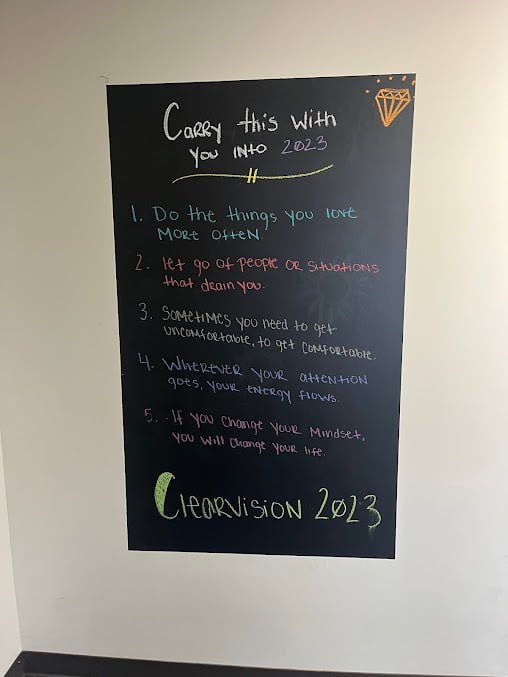 Carry this with
you into 2023
1. Do the things you love
more often
2. let go of people or situations
that drain you.
3. Sometimes you need to get
uncomfortable, to get comfortable.
4. Wherever your attention
goes, your energy flows.
5. If you change your mindset,
you will change your life.
Clearvision 2023